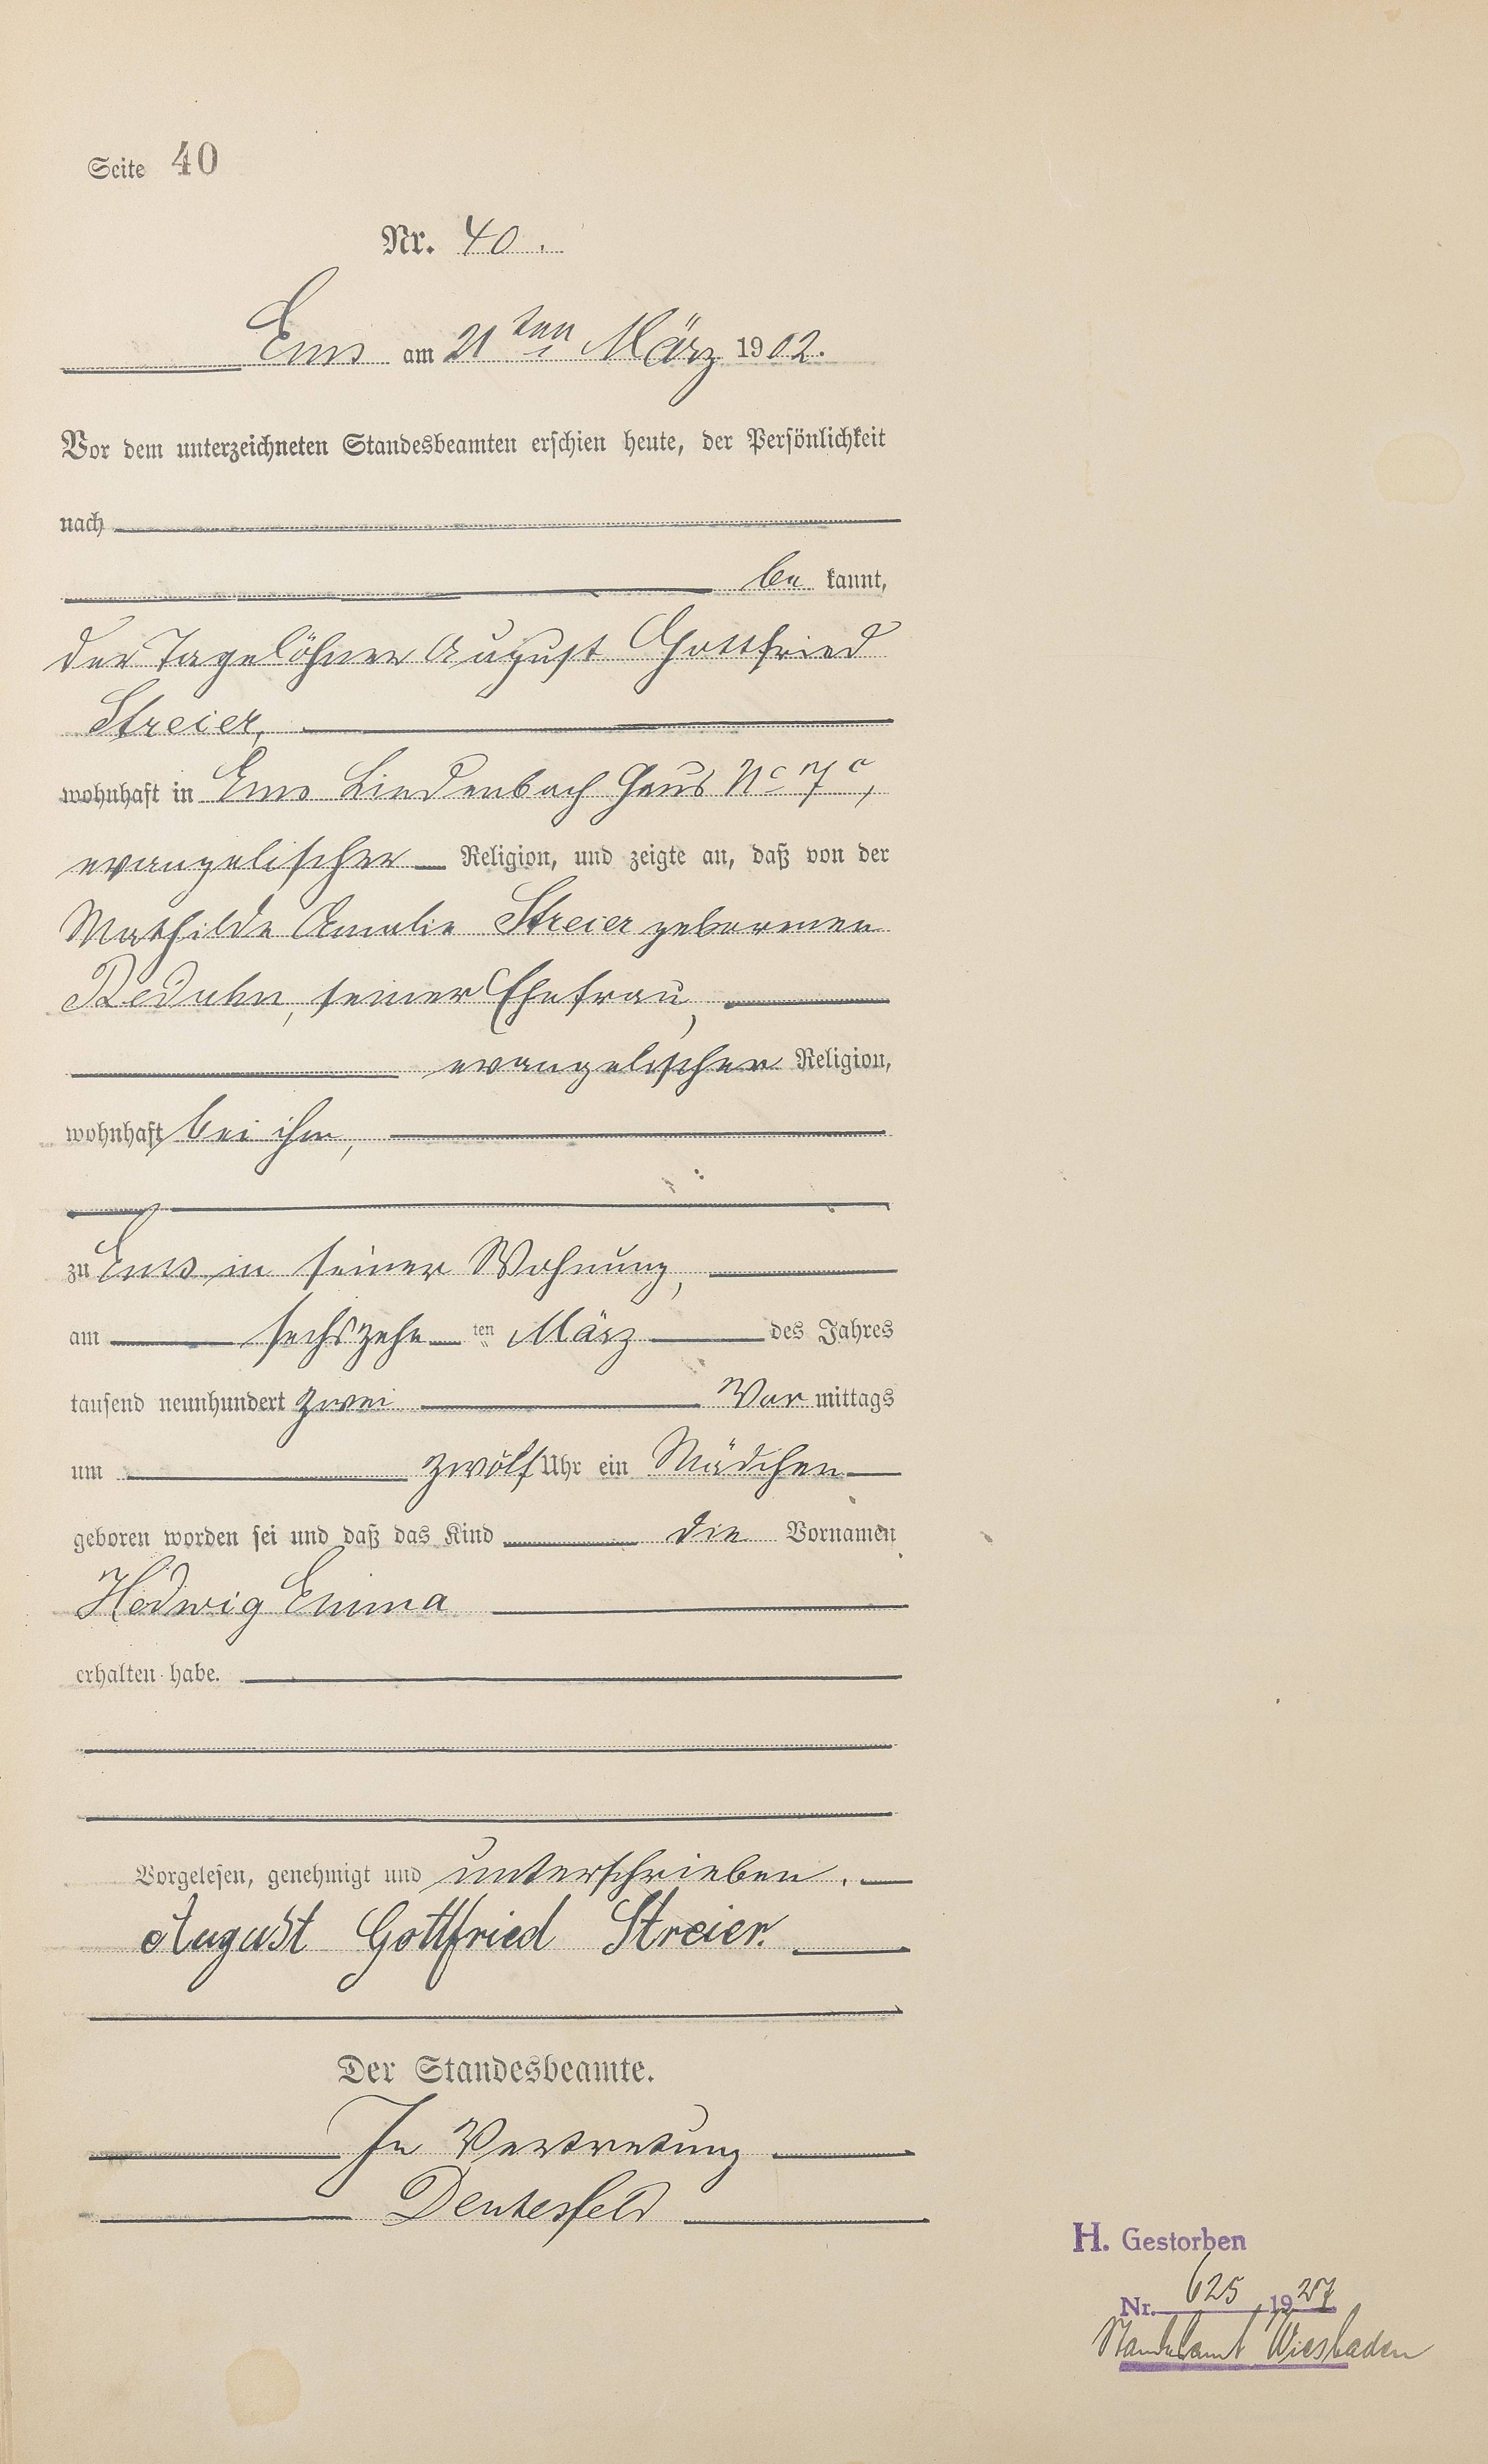 Seite 40
Nr. 40.
Ems am 21ten März 1902.
Vor dem unterzeichneten Standesbeamten erschien heute, der Persönlichkeit
nach
be kannt,
der Tagelöhner August Gottfried
Streier,
wohnhaft in Ems Lindenbach Haus No 7c,
evangelischer Religion, und zeigte an, daß von der
Mathilde Amalie Streier geborenen
Reduhn, seiner Ehefrau,
evangelischer Religion,
wohnhaft bei ihm,
zu Ems in seiner Wohnung,
am sechszehnten März des Jahres
tausend neunhundert zwei Vor mittags
um zwölf Uhr ein Mädchen
geboren worden sei und daß das Kind die Vornamen
Hedwig Emma
erhalten habe.
Vorgelesen, genehmigt und unterschrieben.
August Gottfried Streier.
Der Standesbeamte.
In Vertretung
Denkesfeld
H. Gestorben
Nr. 625 1927
Standesamt Wiesbaden